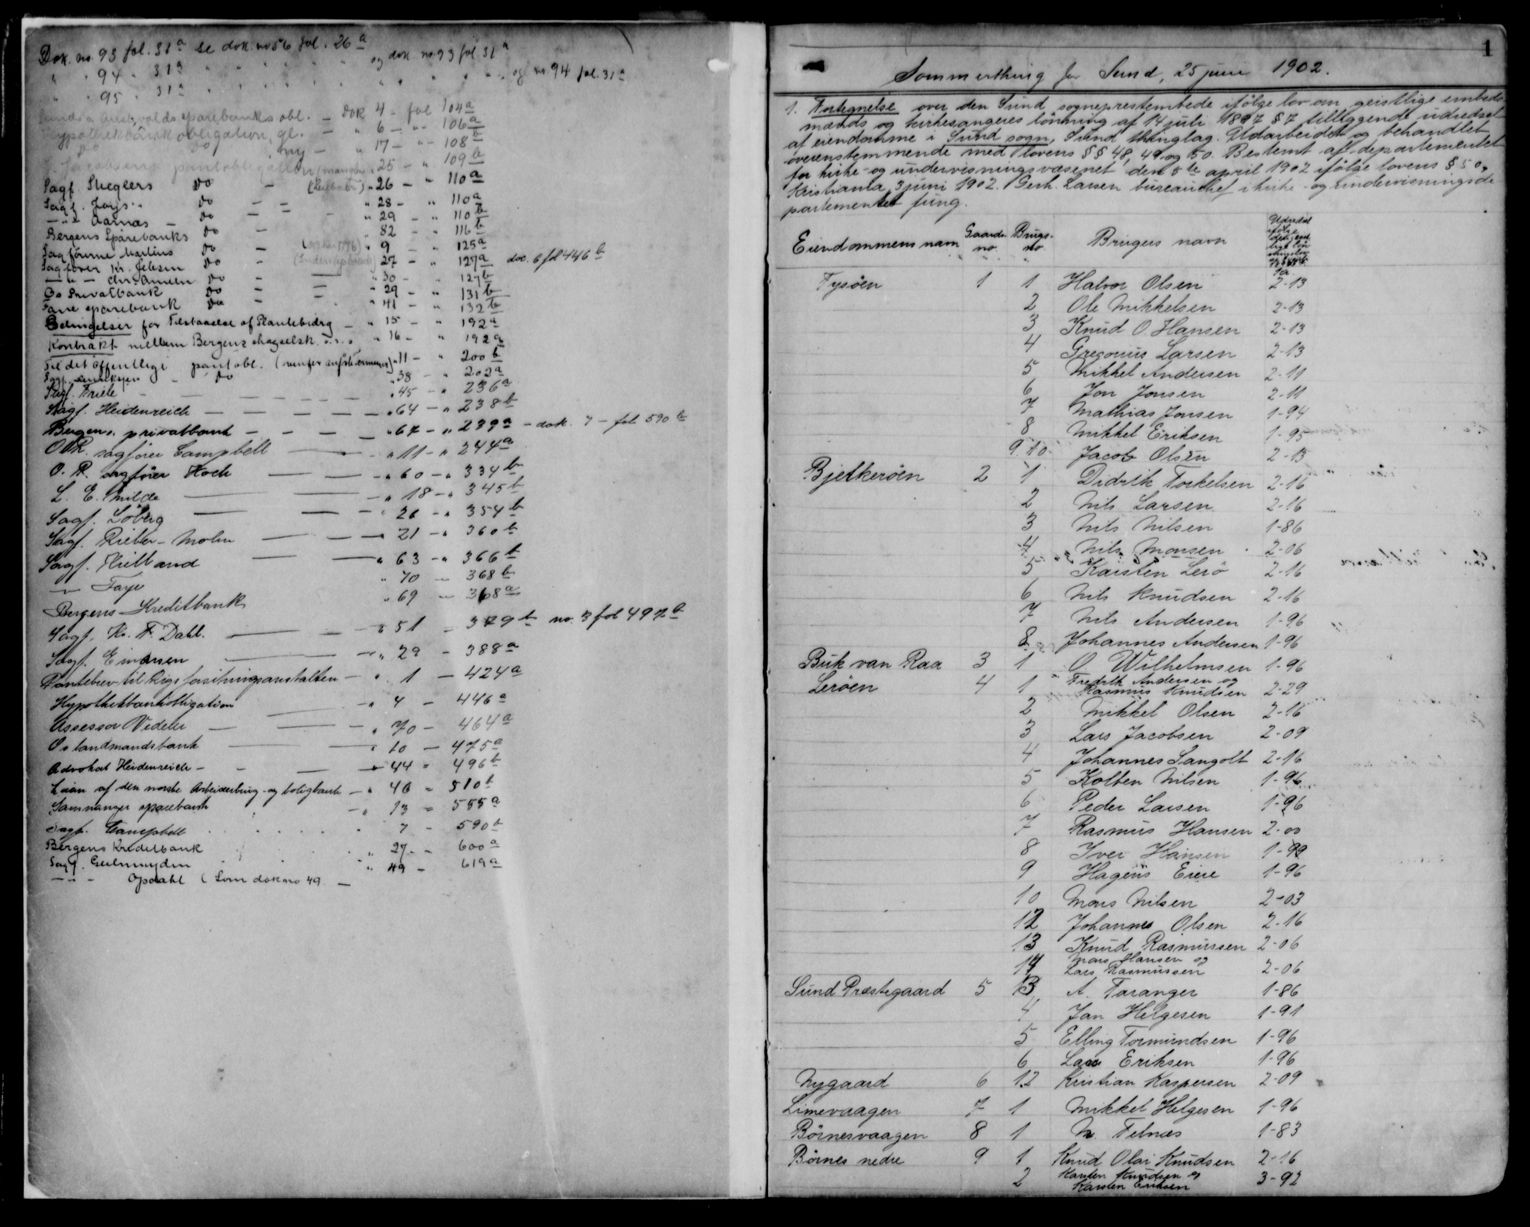 Dok. no. 93 fol. 31a se dok. no 56 fol. 26a
" " 94 - 31a " " " " " og dok no 93 fol 31a
" " 95 - 31a " " " " " " " og no 94 fol. 31a
sparebanks obl. - dok 4 - fol 104a
Hypothekbank obligation gl. - " 6 - " 106a
do do ny - " 17 - " 108b
pantobl. " 25 - " 109a
Sagf. Stegeers do " 26 - " 110a
Sagf. do - " 28 - " 110a
- " - Aarnæs - do " 29 - " 110b
Bergens Sparebanks do " 82 - " 116b
Sagförer Martins do - " 9 - " 125a
Sagförer Kr. Jebsen do - " 27 - " 127a dok. 6 fol 446b
- " - Chr. Amlien do - " 30 - " 127b
Bs Privatbank do - " 29 - " 131b
Fane sparebank do - " 41 - " 132b
Betingelser for Tilstaaelse af Plantebidrag - " 15 - " 192a
Kontrakt mellem Bergens skogselsk. o. s. v. " 16 - " 192a
Til det offentlige pantobl. " 11 - " 200b
do " 38 - " 202a
Sagf. Friele - " 45 - " 236a
Sagf. Heidenreich - " 64 - " 238b
Bergens privatbank - " 67 - " 239a - dok. 7 - fol 590b
O. R. sagfører Campbell - " 11 - " 244a
O. R. sagfører Koch - " 60 - " 334b
L. E. Milde - " 18 - " 345b
Sagf. Löberg - " 26 - " 354b
Sagf. Rieber-Mohn - " 21 - " 360b
Sagf. Hilland - " 63 - " 366b
- " - Faye " 70 - 368b
Bergens Kreditbank " 69 - 368a
Sagf. Kr. F. Dahl. - " 51 - 379b no. 3 fol 497a
Sagf. Einarsen - " 29 - 388a
Pantebrev til Rigsforsikringsanstalten - " 1 - 424a
Hypothekbankobligation - " 4 - 446a
Assessor Vedeler - " 70 - 464a
Os landmandsbank - " 10 - 475a
Advokat Heidenreich - " 44 - 496b
Laan af den norske Arbeiderbrug- og boligbank - " 46 - 510b
Samnanger sparebank - " 13 - 555a
Sagf. Campbell 7 - 590b
Bergens Kreditbank " 27 - 600a
Sagf. Geelmuyden " 49 - 619a
- " - Opdahl (Som dok no 49 -
1
Sommerthing for Sund, 25 juni 1902.
1. Fortegnelse over den Sund sogneprestembede ifölge lov om geistlige embeds-
mænds og kirkesangeres lönning af 14 juli 1897 § 7 tilleggende udredsel
af eiendomme i Sund sogn, Sund thinglag. Udarbeidet og behandlet
overensstemmende med lovens § § 48, 49 og 50. Bestemt af departementet
for kirke- og undervisningsvæsenet den 5te april 1902 ifölge lovens § 50.
Kristiania 3 juni 1902. Gerh. Larsen bureauchef i kirke- og undervisningsde-
partementet fung.
Eiendommens navn Gaards no. Brugs- no. Brugers navn
Tysöen 1 1 Halvor Olsen 2-13
2 Ole Mikkelsen 2-13
3 Knud O. Hansen 2-13
4 Gregorius Larsen 2-13
5 Mikkel Andersen 2-11
6 Jon Jonsen 2-11
7 Mathias Jonsen 1-94
8 Mikkel Eriksen 1-95
9, 10 Jacob Olsen 2-13
Bjelkeröen 2 1 Didrik Torkelsen 2-16
2 Nils Larsen 2-16
3 Nils Nilsen 1-86
4 Nils Monsen 2-06
5 Karsten Lerö 2-16
6 Nils Knudsen 2-16
7 Nils Andersen 1-96
8 Johannes Andersen 1-96
Buk van Raa 3 1 O. Wilhelmsen 1-96
Leröen 4 1 Fredrik Andersen og
Rasmus Knudsen 2-29
2 Mikkel Olsen 2-16
3 Lars Jacobsen 2-09
4 Johannes Sangolt 2-16
5 Kolben Nilsen 1-96
6 Peder Larsen 1-96
7 Rasmus Hansen 2-00
8 Iver Hansen 1-99
9 Hagens Eiere 1-96
10 Mons Nilsen 2-03
12 Johannes Olsen 2-16
13 Knud Rasmussen 2-06
14 Mons Hansen og
Lars Rasmussen 2-06
Sund Præstegaard 5 3 A. Taranger 1-86
4 Jan Helgesen 1-91
5 Elling Tormundsen 1-96
6 Lars Eriksen 1-96
Nygaard 6 12 Kristian Kaspersen 2-09
Limevaagen 7 1 Mikkel Helgesen 1-96
Börnesvaagen 8 1 N. Telnæs 1-83
Börnes nedre 9 1 Knud Olai Knudsen 2-16
2 Karsten Knudsen og
Karsten Eriksen 3-92